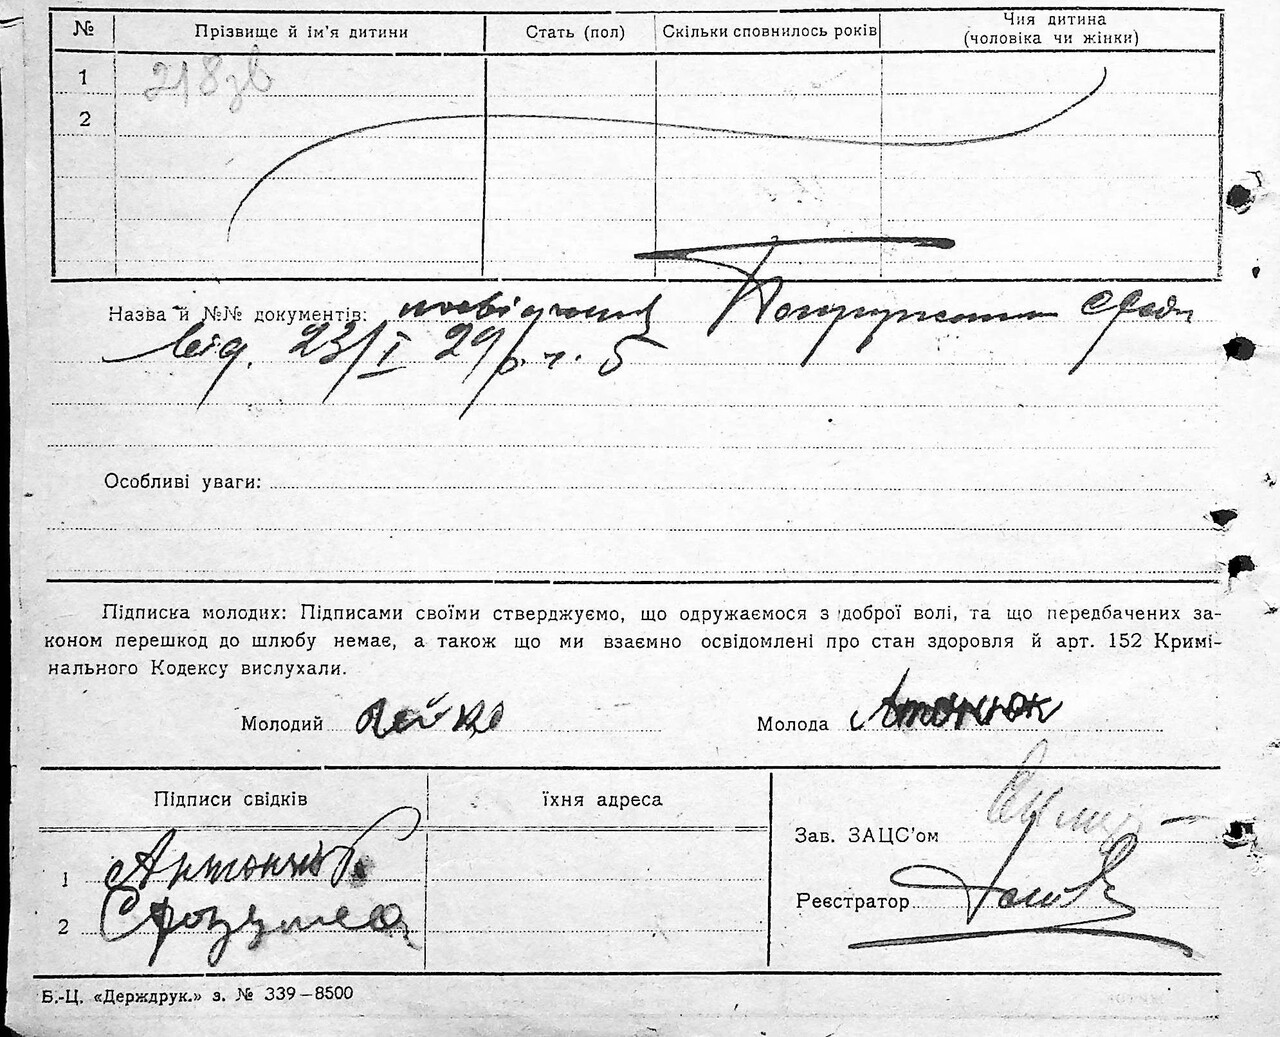 № Прізвище й ім'я дитини Стать (пол) Скільки сповнилось років Чия дитина (чоловіка чи жінки)
1 218зв
2
Назва й №№ документів: посвідчення
від. 23/I 29 р. ч. 5
Особливі уваги:
Підписка молодих: Підписами своїми стверджуємо, що одружаємося з доброї волі, та що передбачених за-
коном перешкод до шлюбу немає, а також що ми взаємно освідомлені про стан здоровля й арт. 152 Кримі-
нального Кодексу вислухали.
Молодий Молода
Підписи свідків їхня адреса
Зав. ЗАЦС'ом
1
Реєстратор
2
Б.-Ц. «Держдрук.» з. № 339–8500